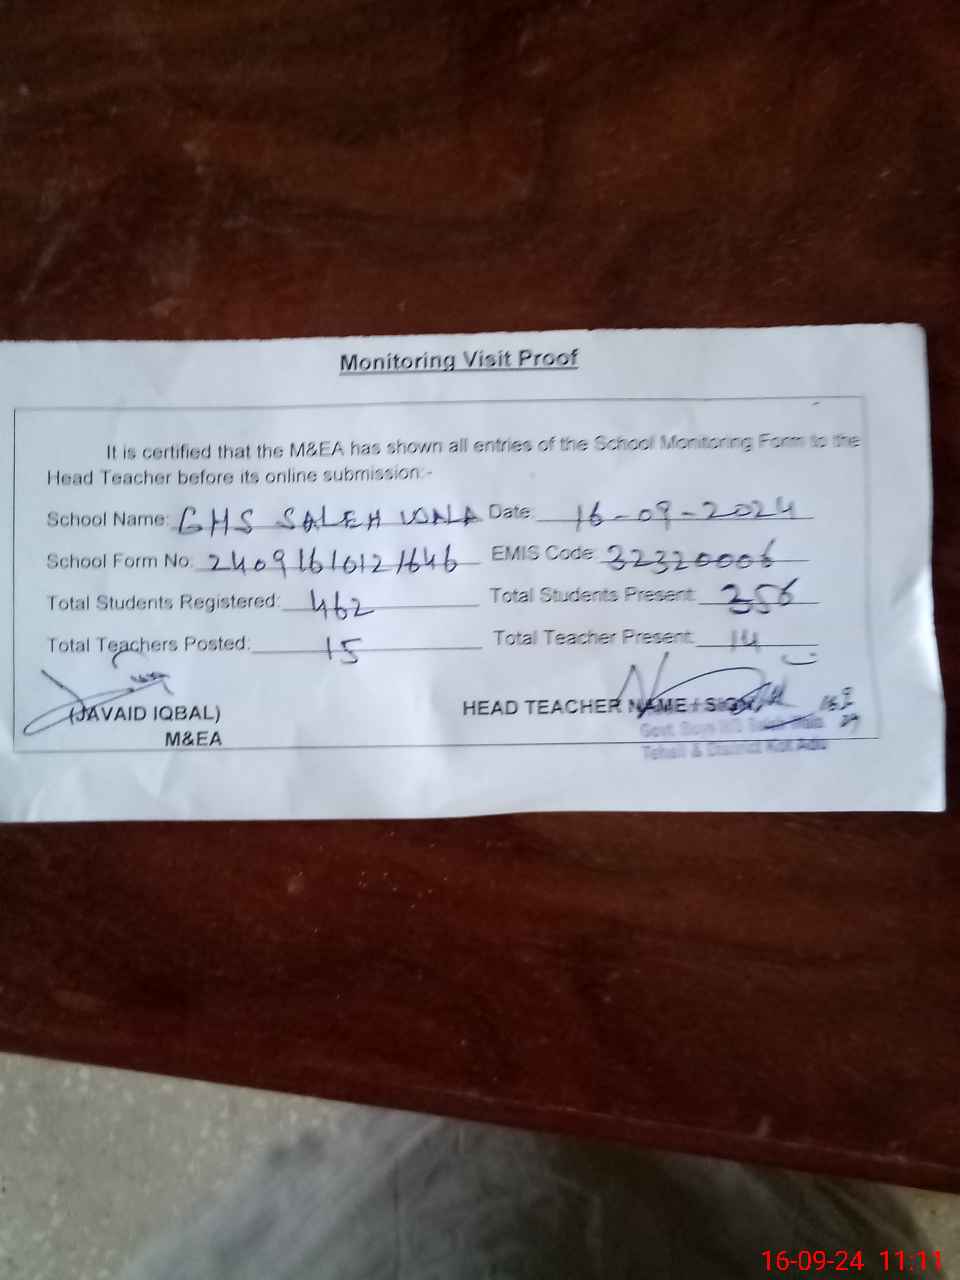 Monitoring Visit Proof
It is certified that the M&EA has shown all entries of the School Monitoring Form to the
Head Teacher before its online submission:-
School Name: GHS SALEH WALA Date: 16-09-2024
School Form No: 24091616121646 EMIS Code: 32320006
Total Students Registered: 462 Total Students Present: 356
Total Teachers Posted: 15 Total Teacher Present: 14
(JAVAID IQBAL) HEAD TEACHER NAME + SIGN
M&EA
Govt. Boys
Tehsil & District Kot Adu
16-09-24 11:11